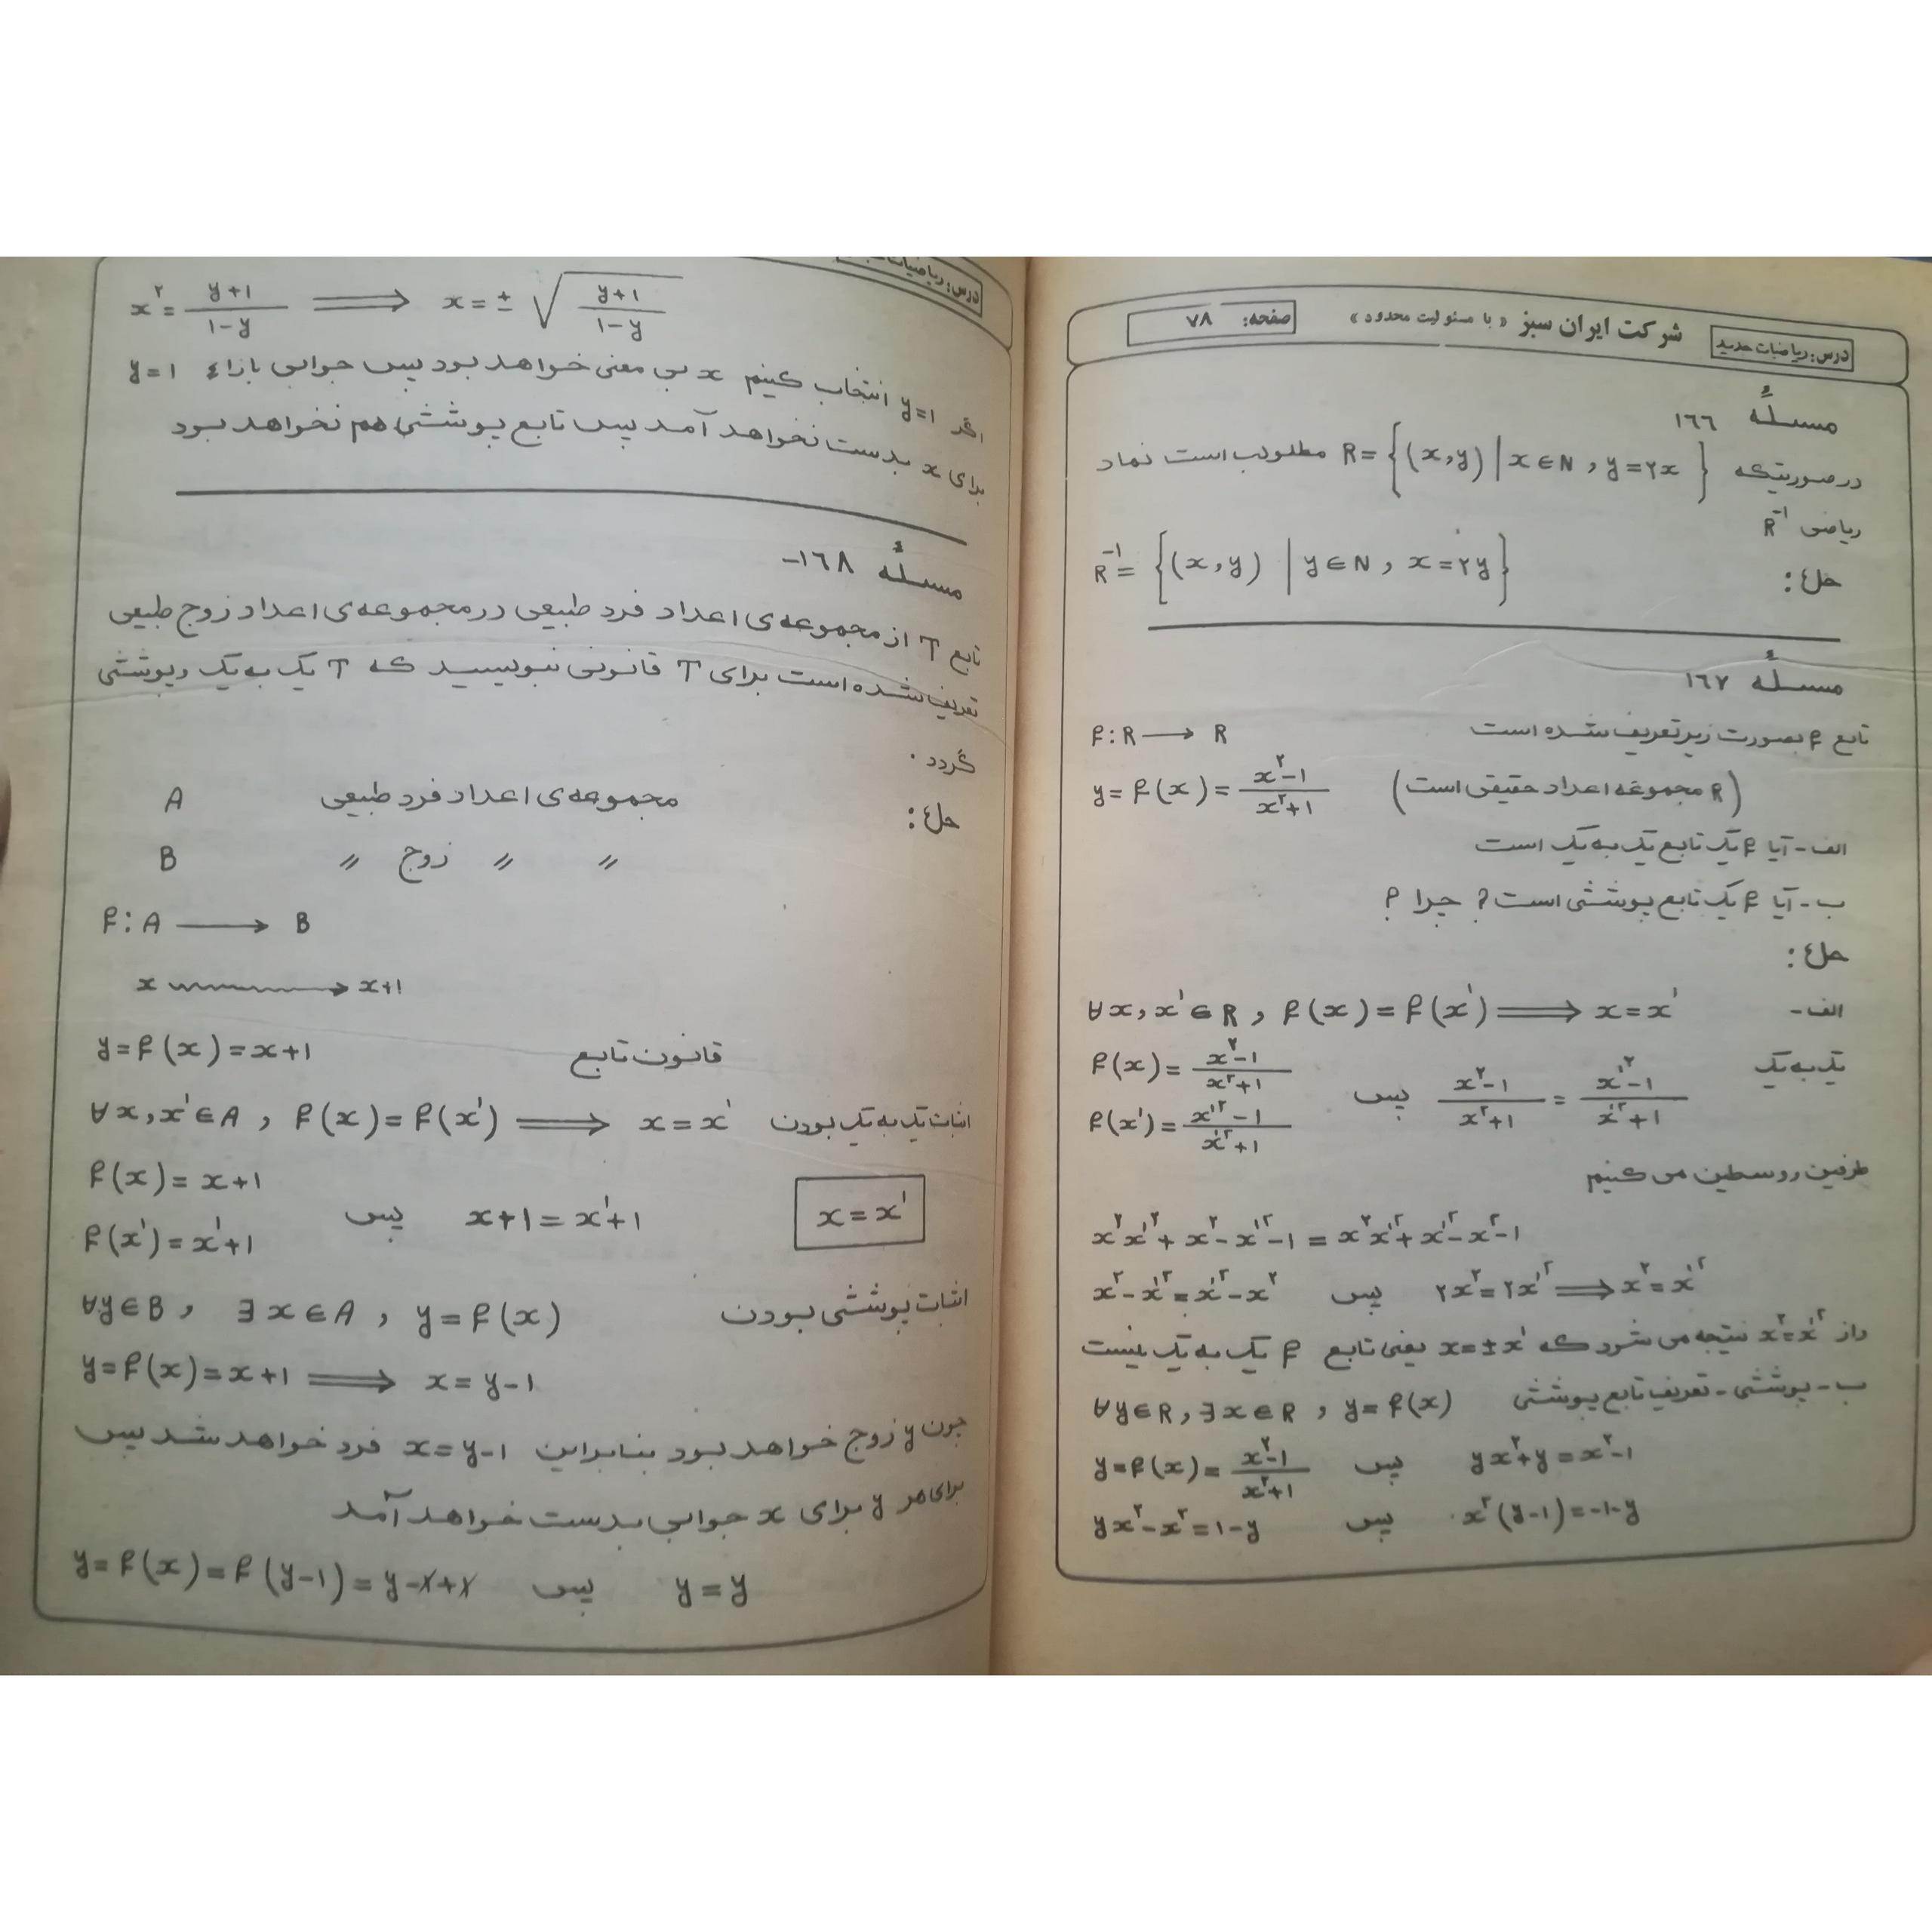 درس: ریاضیات جدید شرکت ایران سبز «با مسئولیت محدود» صفحه: ۷۸
مسئلهٔ ۱۶۶
در صورتیکه R = {(x,y) | x∈N , y=۲x} مطلوب است نماد
ریاضی R⁻¹
حل: R⁻¹ = {(x,y) | y∈N , x=۲y}
مسئلهٔ ۱۶۷
تابع f بصورت زیر تعریف شده است f: R ⟶ R
(R مجموعه اعداد حقیقی است) y = f(x) = (x²-1)/(x²+1)
الف- آیا f یک تابع یک به یک است
ب- آیا f یک تابع پوششی است؟ چرا؟
حل:
الف- ∀x, x'∈R , f(x) = f(x') ⟹ x = x'
یک به یک f(x) = (x²-1)/(x²+1) پس (x²-1)/(x²+1) = (x'²-1)/(x'²+1)
f(x') = (x'²-1)/(x'²+1)
طرفین روسطین می کنیم
x²x'² + x² - x'² - 1 = x²x'² + x'² - x² - 1
x² - x'² = x'² - x² پس ۲x² = ۲x'² ⟹ x² = x'²
واز x² = x'² نتیجه می شود که x = ±x' یعنی تابع f یک به یک نیست
ب- پوششی - تعریف تابع پوششی ∀y∈R, ∃x∈R , y = f(x)
y = f(x) = (x²-1)/(x²+1) پس yx² + y = x² - 1
yx² - x² = 1 - y پس x²(y-1) = -1-y
درس: ریاضیات
x² = (y+1)/(1-y) ⟹ x = ±√((y+1)/(1-y))
اگر y=1 انتخاب کنیم x بی معنی خواهد بود پس جوابی بازاء y=1
برای x بدست نخواهد آمد پس تابع پوششی هم نخواهد بود
مسئلهٔ ۱۶۸-
تابع T از مجموعه ی اعداد فرد طبیعی در مجموعه ی اعداد زوج طبیعی
تعریف شده است برای T قانونی بنویسید که T یک به یک و پوششی
گردد.
حل: مجموعه ی اعداد فرد طبیعی A
〃 〃 زوج 〃 B
f: A ⟶ B
x ⟿ x+1
قانون تابع y = f(x) = x+1
اثبات یک به یک بودن ∀x, x'∈A , f(x) = f(x') ⟹ x = x'
f(x) = x+1
پس x+1 = x'+1 x = x'
f(x') = x'+1
اثبات پوششی بودن ∀y∈B , ∃x∈A , y = f(x)
y = f(x) = x+1 ⟹ x = y-1
چون y زوج خواهد بود بنابراین x = y-1 فرد خواهد شد پس
برای هر y برای x جوابی بدست خواهد آمد
y = f(x) = f(y-1) = y-1+1 پس y = y